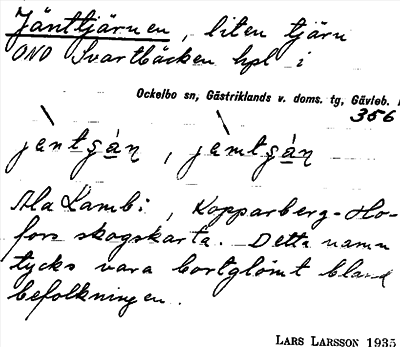 Jänttjärnen, liten tjärn
ONO Svartbäcken hpl i
Ockelbo sn, Gästriklands v. doms. tg, Gävleb. l
356
jæntʂän, jæmtʂän
Ala Lambi, Kopparberg-Ho-
fors skogskarta. Detta namn
tycks vara bortglömt bland
befolkningen.
LARS LARSSON 1935